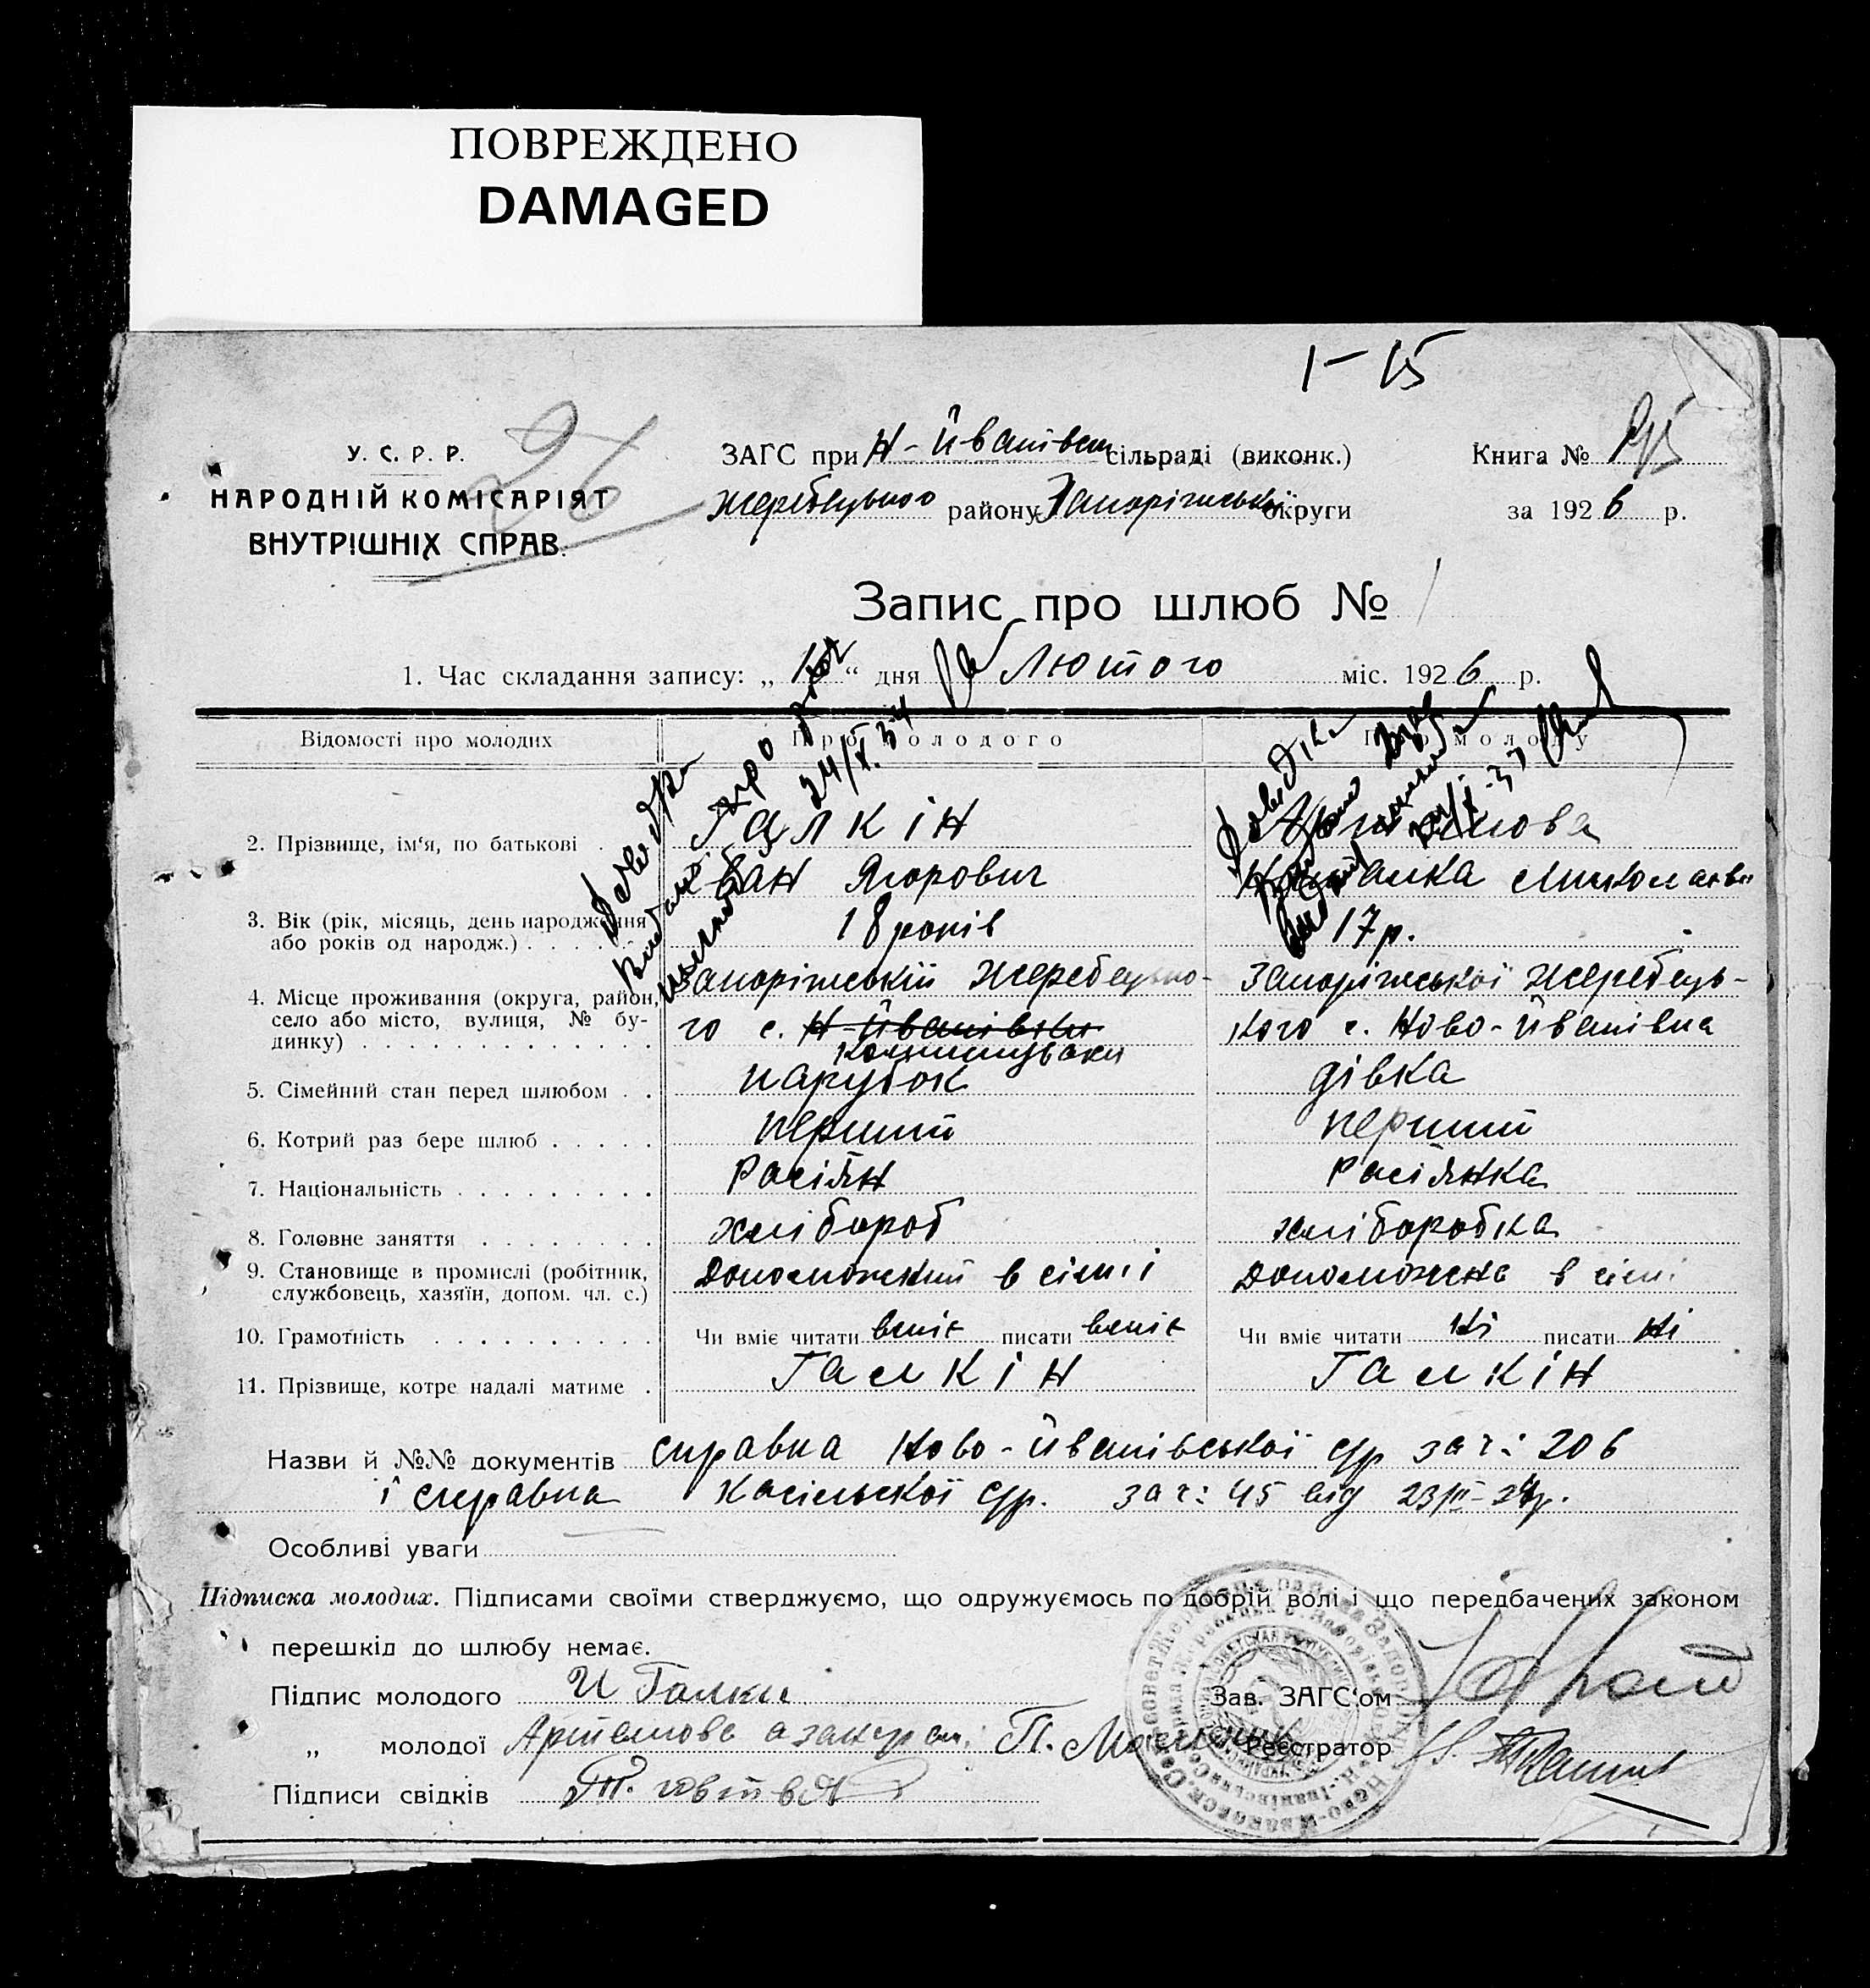 ПОВРЕЖДЕНО
DAMAGED
1-15
26
У. С. Р. Р.
НАРОДНІЙ КОМІСАРІЯТ
ВНУТРІШНІХ СПРАВ.
ЗАГС при Н-Йванівськ сільраді (виконк.)
Жеребецького району Запоріжської округи
Книга №
за 1926 р.
Запис про шлюб № 1
1. Час складання запису: „ “ дня Лютого міс. 1926 р.
Відомості про молодих
Про молодого
Про молоду
2. Прізвище, ім‘я, по батькові .
Галкін
Іван Ягорович
Миколаївн
3. Вік (рік, місяць, день народження або років од народж.) . . . . .
18 років
17 р.
4. Місце проживання (округа, район, село або місто, вулиця, № будинку) . . . . . . . . . . . .
Запоріжській Жеребецько-
го с. Н-Йванівки
Запоріжської Жеребець-
кого с. Ново-Йванівка
5. Сімейний стан перед шлюбом . .
парубок
дівка
6. Котрий раз бере шлюб . . . . .
перший
перший
7. Національність . . . . . . . . .
Расіян
Расіянка
8. Головне заняття . . . . . . . .
хлібороб
хліборобка
9. Становище в промислі (робітник, службовець, хазяїн, допом. чл. с.)
допоможний в сімї
допоможна в сімї
10. Грамотність . . . . . . . . . .
Чи вміє читати вміє писати вміє
Чи вміє читати ні писати ні
11. Прізвище, котре надалі матиме .
Галкін
Галкін
Назви й №№ документів справка Ново-Йванівської с/р за ч: 206
і справка с/р. за ч: 45 від 23/
Особливі уваги
Підписка молодих. Підписами своїми стверджуємо, що одружуємось по добрій волі і що передбачених законом
перешкід до шлюбу немає.
Підпис молодого И Галки
„ молодої Артемова а за П.
Підписи свідків
Зав. ЗАГС‘ом
Реєстратор